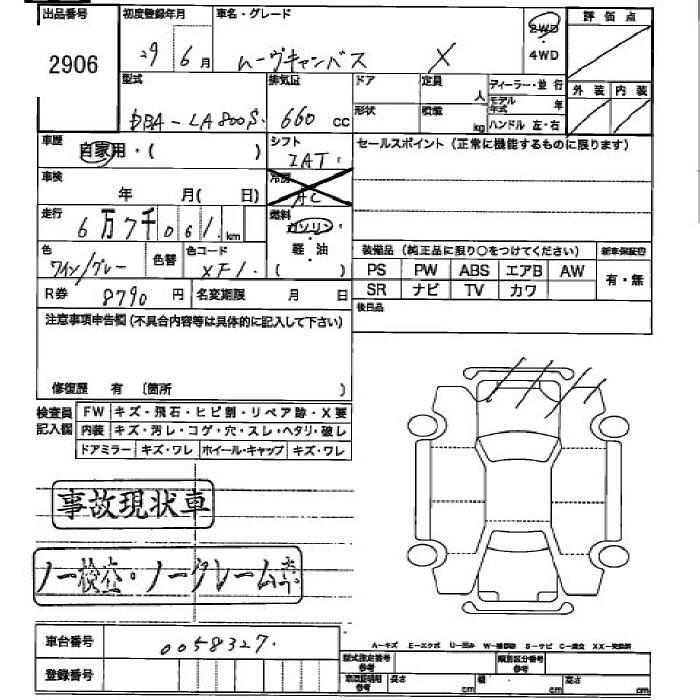 出品番号
2906
初度登録年月
29年 6月
車名・グレード
ムーヴキャンバス X
2WD
4WD
評価点
外装 内装
型式
DBA-LA800S.
排気量
660 cc
ドア
形状
定員 人
積載 kg
ディーラー・並行
モデル年式 年
ハンドル 左・右
車歴
自家用・( )
シフト
IAT.
セールスポイント (正常に機能するものに限ります)
車検
年 月( 日
冷房
AC
走行
6万7千061. km
燃料
ガソリン
軽・油
( )
色
ワイン/グレー
色替
色コード
XF1.
装備品 (純正品に限り○をつけてください)
新車保証書
PS PW ABS エアB AW
SR ナビ TV カワ
有・無
R券 8790 円
名変期限 月 日
後日品
注意事項申告欄 (不具合内容等は具体的に記入して下さい)
修復歴 有 (箇所 )
検査員記入欄
FW キズ・飛石・ヒビ割・リペア跡・X要
内装 キズ・汚レ・コゲ・穴・スレ・ヘタリ・破レ
ドアミラー キズ・ワレ ホイール・キャップ キズ・ワレ
事故現状車
ノー検査・ノークレーム
車台番号
0058327.
登録番号
A-キズ E-エクボ U-凹み W-補修跡 S-サビ C-腐食 XX-交換済
型式指定番号
参考
類別区分番号
参考
車庫証明用
参考
長さ cm 幅 cm 高さ cm